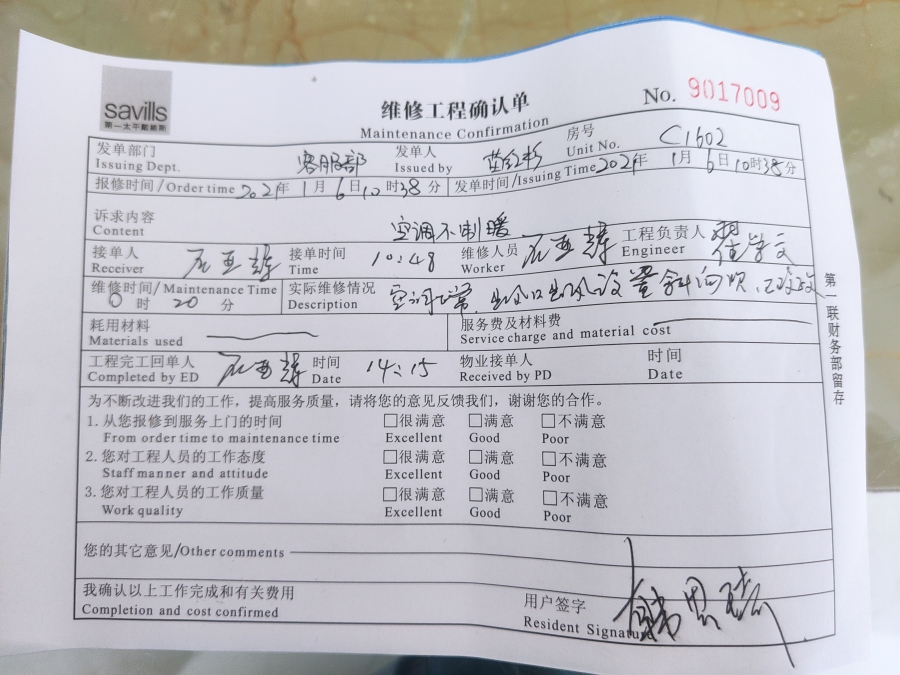 savills
第一太平戴维斯
维修工程确认单
Maintenance Confirmation
No. 9017009
发单部门 客服部 发单人 苗红杉 房号 C1602
Issuing Dept. Issued by Unit No.
报修时间/Order time 2021年 1月 6日 10时38分 发单时间/Issuing Time 2021年 1月 6日 10时38分
诉求内容 空调不制暖
Content
接单人 石亚辉 接单时间 10:48 维修人员 石亚辉 工程负责人
Receiver Time Worker Engineer
维修时间/Maintenance Time 实际维修情况 空调正常,出风口出风
0时 20分 Description
耗用材料 服务费及材料费
Materials used Service charge and material cost
工程完工回单人 石亚辉 时间 14:15 物业接单人 时间
Completed by ED Date Received by PD Date
为不断改进我们的工作,提高服务质量,请将您的意见反馈我们,谢谢您的合作。
1. 从您报修到服务上门的时间 □很满意 □满意 □不满意
From order time to maintenance time Excellent Good Poor
2. 您对工程人员的工作态度 □很满意 □满意 □不满意
Staff manner and attitude Excellent Good Poor
3. 您对工程人员的工作质量 □很满意 □满意 □不满意
Work quality Excellent Good Poor
您的其它意见/Other comments
我确认以上工作完成和有关费用 用户签字
Completion and cost confirmed Resident Signature
第一联财务部留存